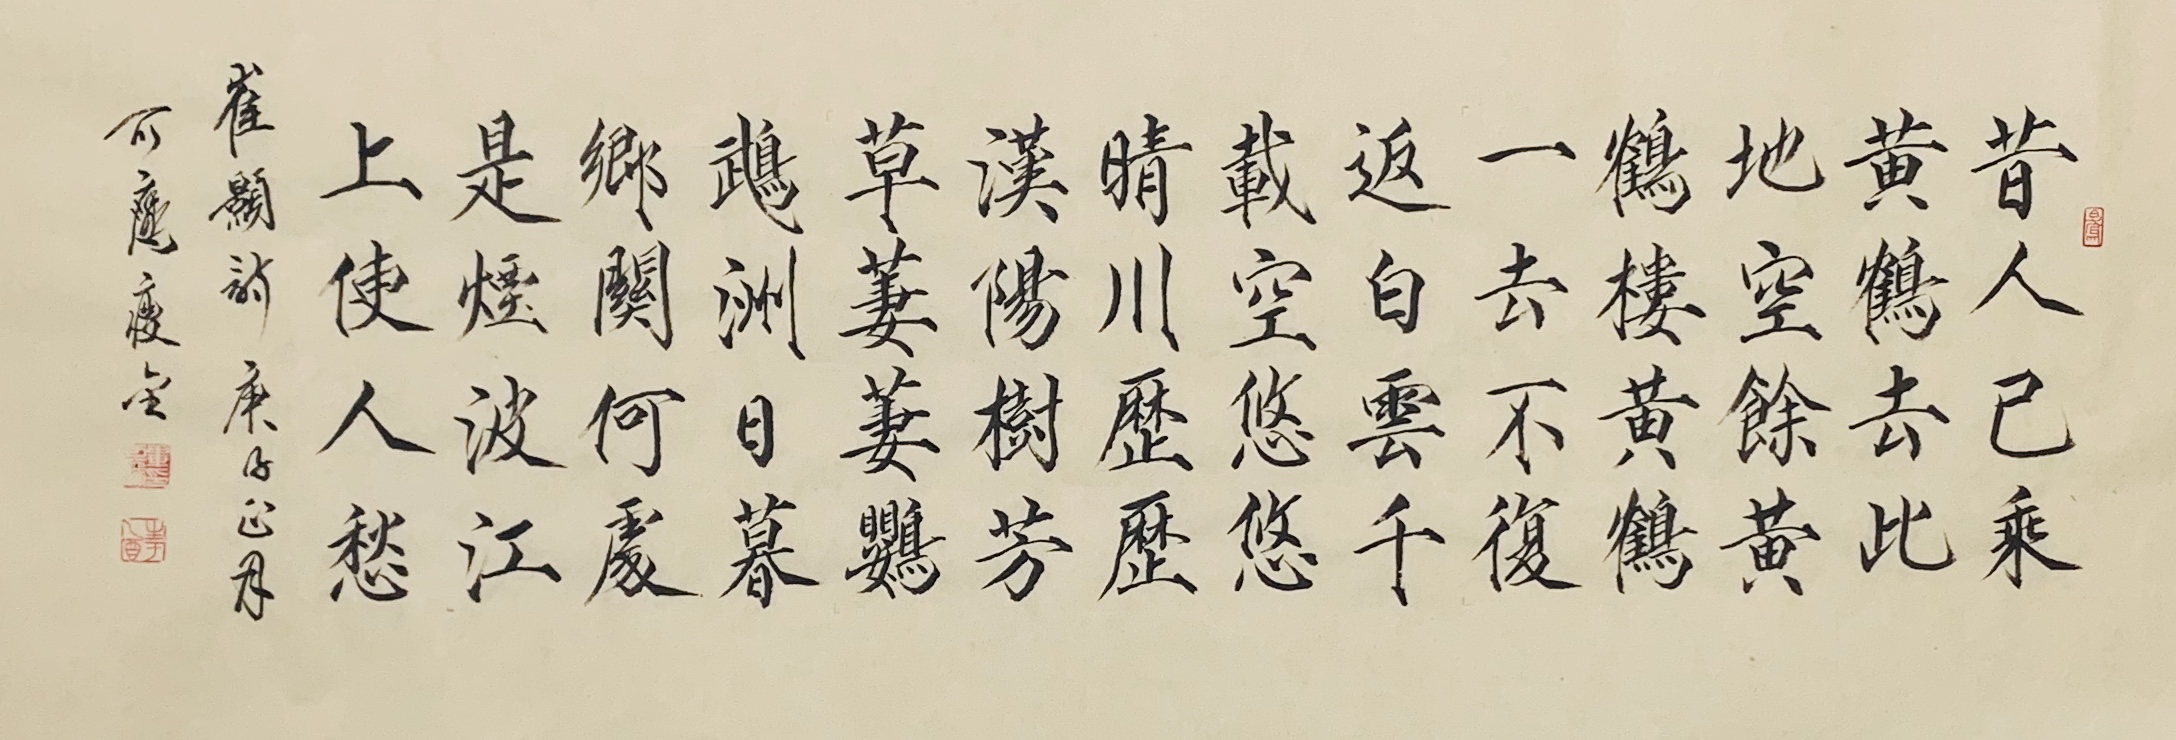 昔人已乘
黄鶴去此
地空餘黄
鶴樓黄鶴
一去不復
返白雲千
載空悠悠
晴川歷歷
漢陽樹芳
草萋萋鸚
鵡洲日暮
鄉關何處
是煙波江
上使人愁
崔顥詩庚子正月